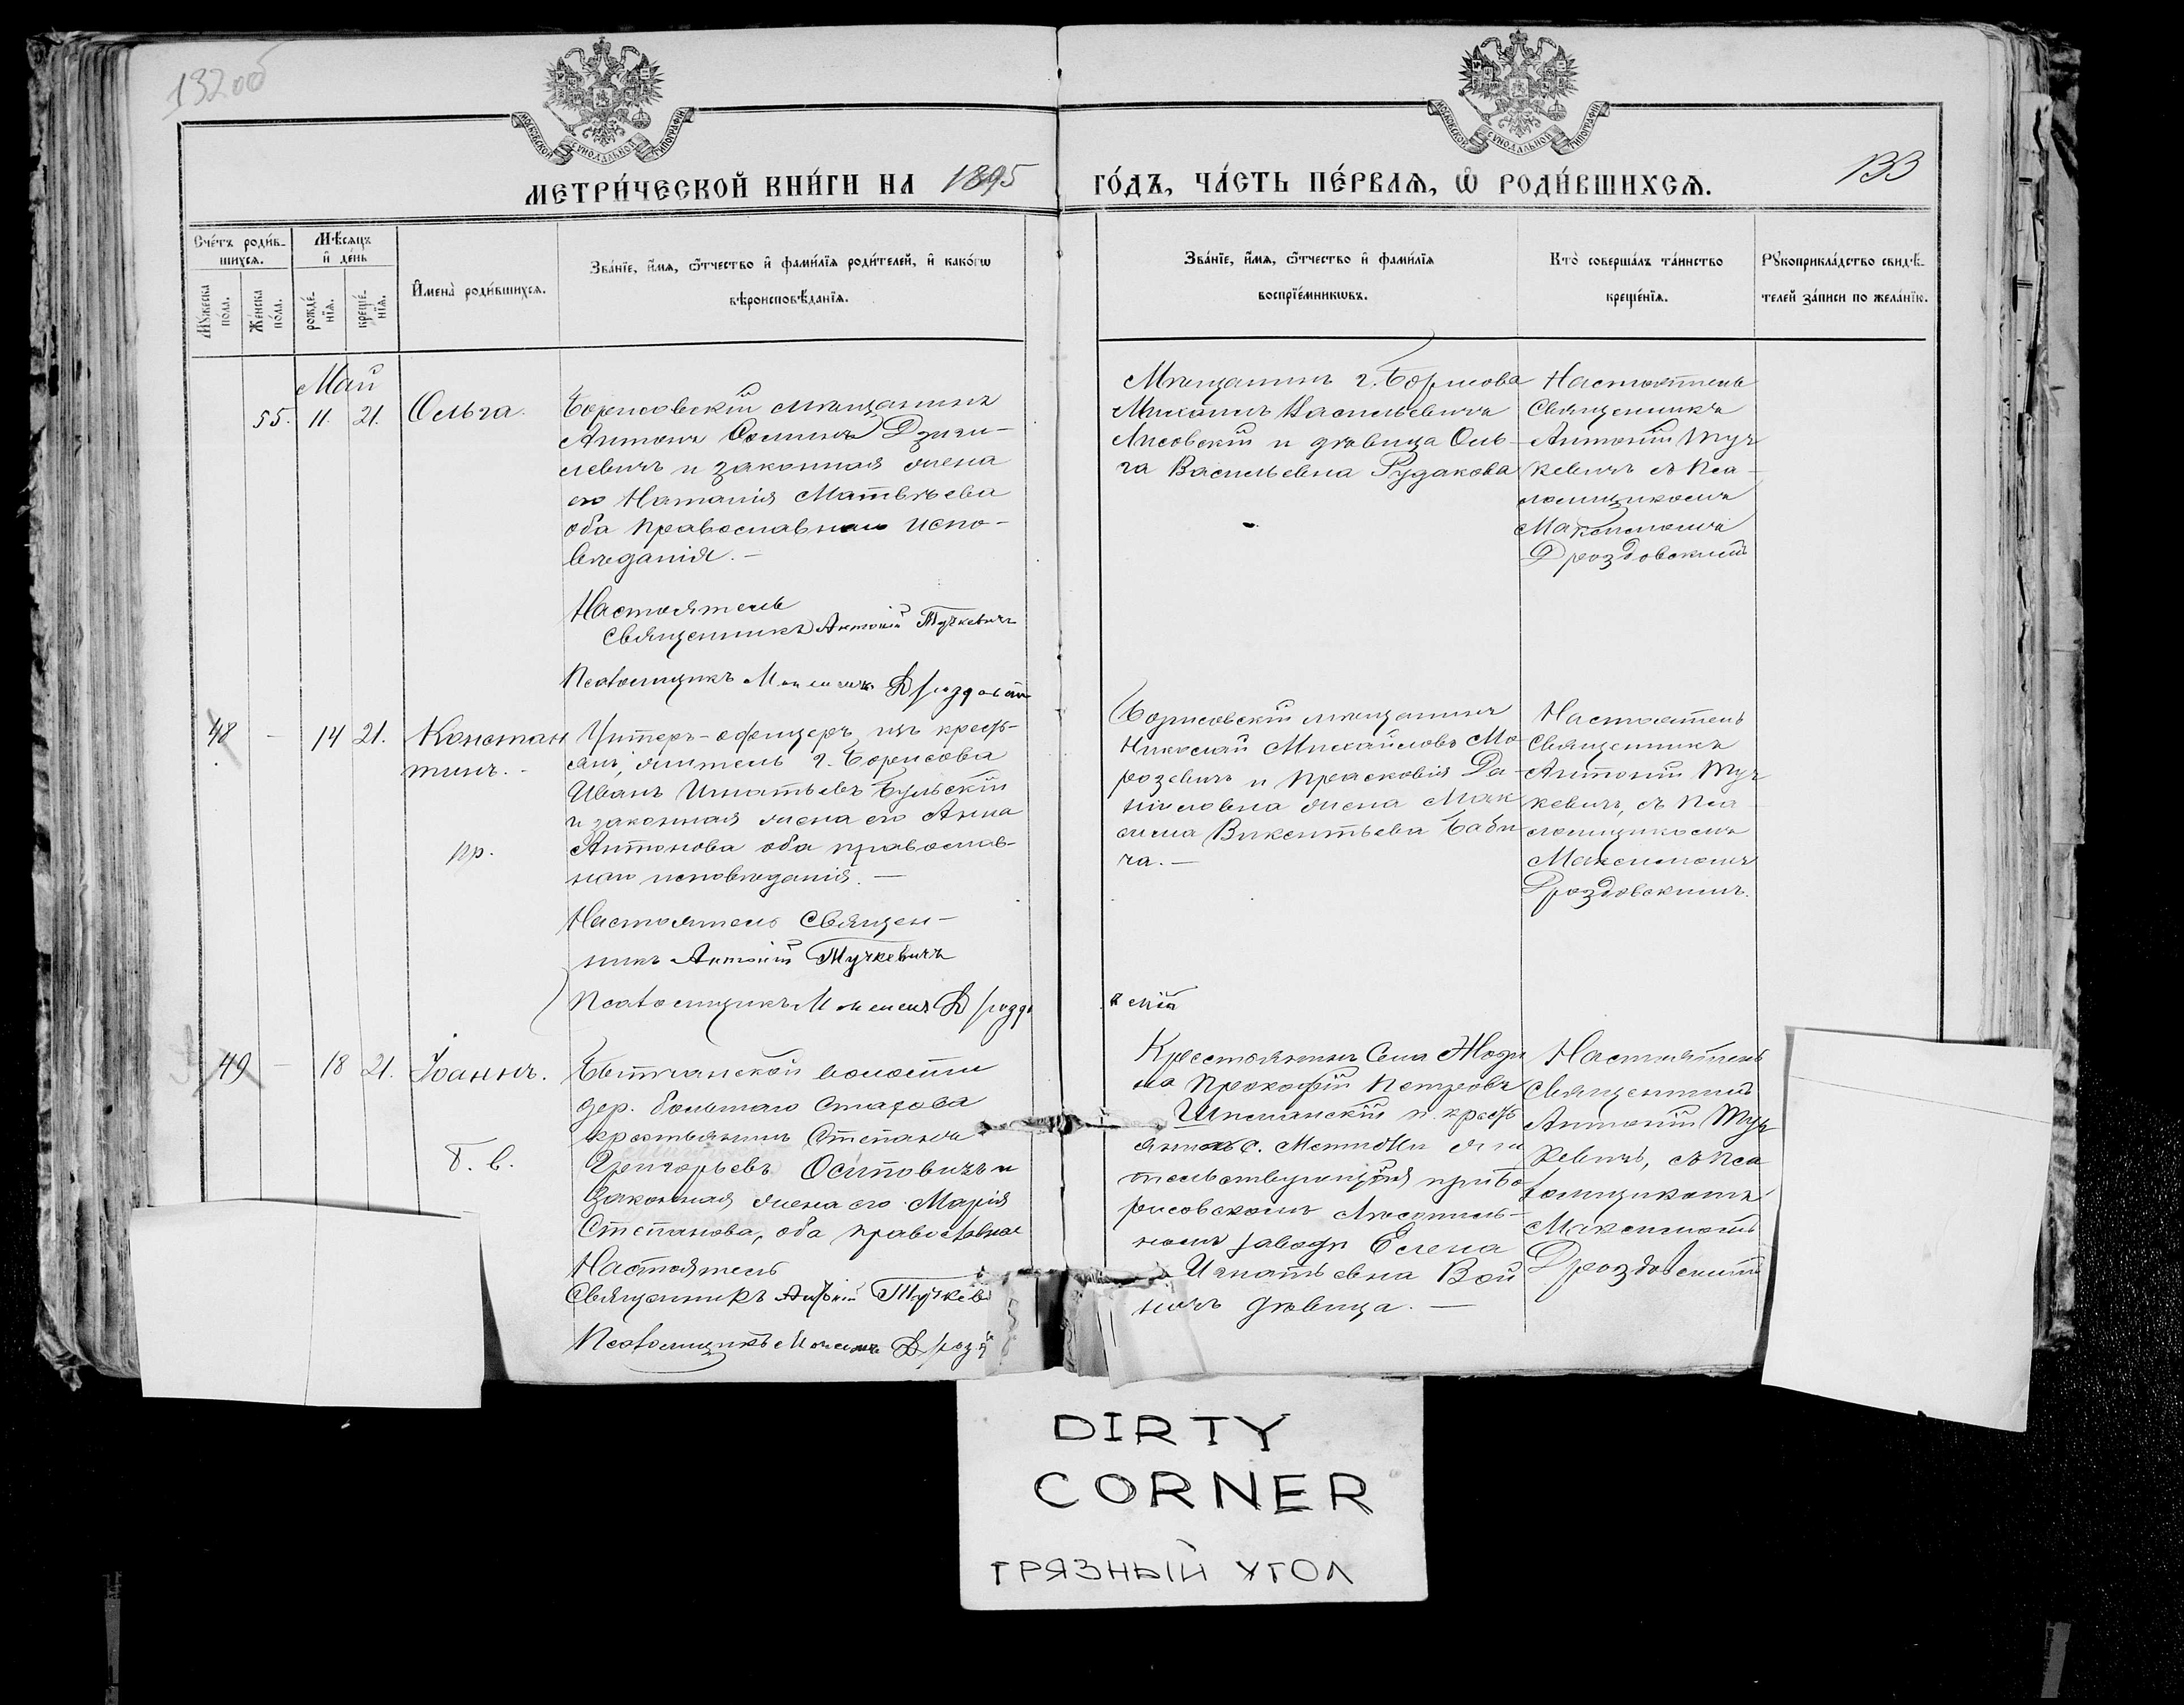 132 об
МОСКОВСКОЙ СУНОДАЛЬНОЙ ТИПОГРАФІИ
МОСКОВСКОЙ СУНОДАЛЬНОЙ ТИПОГРАФІИ
МЕТРИ́ЧЕСКОЙ КНИ́ГИ НА 1895
ГО́ДЪ, ЧА́СТЬ ПЕ́РВАѦ, Ѡ҆ РОДИ́ВШИХСѦ.
133
Сче́тъ роди́в-
шихсѧ.
Мѣ́сѧцъ
и҆ де́нь
Мꙋ́жеска по́ла.
Же́нска по́ла.
рожде́-
нїѧ.
креще́-
нїѧ.
И҆мена̀ роди́вшихсѧ.
Зва́нїе, и҆́мѧ, ѻ҆́тчество и҆ фами́лїѧ роди́телей, и҆ како́гѡ
вѣроисповѣ́данїѧ.
Зва́нїе, и҆́мѧ, ѻ҆́тчество и҆ фами́лїѧ
воспрїе́мникѡвъ.
Кто̀ соверша́лъ та́инство
креще́нїѧ.
Рꙋкоприкла́дство свидѣ́-
телей за́писи по жела́нїю.
Май
55. 11. 21. Ольга.
Борисовскій мѣщанинъ
Антонъ Дзиги-
левичъ и законная жена
его Наталія Матвѣева
оба православнаго испо-
вѣданія. —
Настоятель
Священникъ Антоній Тучкевичъ
Псаломщикъ Максимъ
Мѣщанинъ г. Борисова
Михаилъ Васильевичъ
Лисовскій и дѣвица Оль-
га Васильевна Рудакова
Настоятель
Священникъ
Антоній Туч
кевичъ съ Пса-
ломщикомъ
Максимомъ
Дроздовскимъ
48 - 14 21. Констан
тинъ. -
пр.
Унтеръ-офицеръ изъ кресть-
янъ, житель г. Борисова
Иванъ Игнатьевъ Бульскій
и законная жена его Анна
Антонова оба православ-
наго исповѣданія. —
Настоятель Священ-
никъ Антоній Тучкевичъ
Псаломщикъ Максимъ Дроздо
Борисовскій мѣщанинъ
Николай Михайловъ Мо-
розевичъ и Прасковія Да-
ниловна жена Мак
сима Викентьева Баби
ча. —
Настоятель
Священникъ
Антоній Туч
кевичъ, съ Пса-
ломщикомъ
Максимомъ
Дроздовскимъ.
49 - 18 21. Іоаннъ.
Б. в.
Бытчанской волости
дер. Большаго Стахова
крестьянинъ Степанъ
Григорьевъ Осиповичъ и
законная жена его Марія
Степанова, оба православнаго
Настоятель
Священникъ Антоній Тучкев
Псаломщикъ Максимъ Дрозд
Крестьянинъ Села Жоди
на Прокофій Петровъ
и кресть
тельствующая при Бо
рисовскомъ
номъ заводѣ Елена
Игнатьевна Вой
ничъ дѣвица. —
Настоятель
Священникъ
Антоній Туч
кевичъ, съ Пса
ломщикомъ
Максимомъ
Дроздовскимъ
DIRTY
CORNER
ГРЯЗНЫЙ УГОЛ